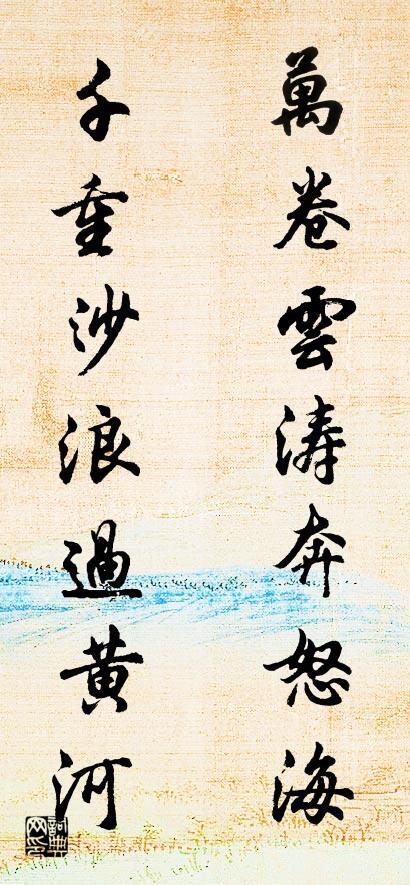 萬卷雲涛奔怒海
千重沙浪過黄河